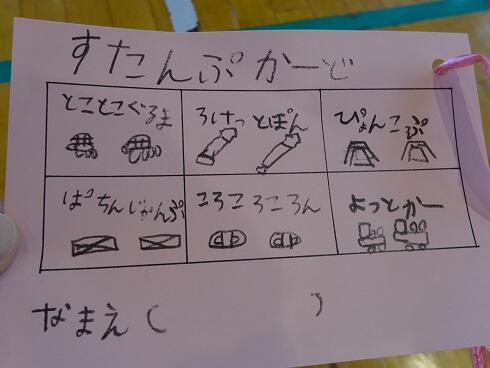 すたんぷかーど
とことこぐるま
ろけっとぽん
ぴょんこぷ
ぱちんじゃんぷ
ころころころん
よっとかー
なまえ(　　　　　)